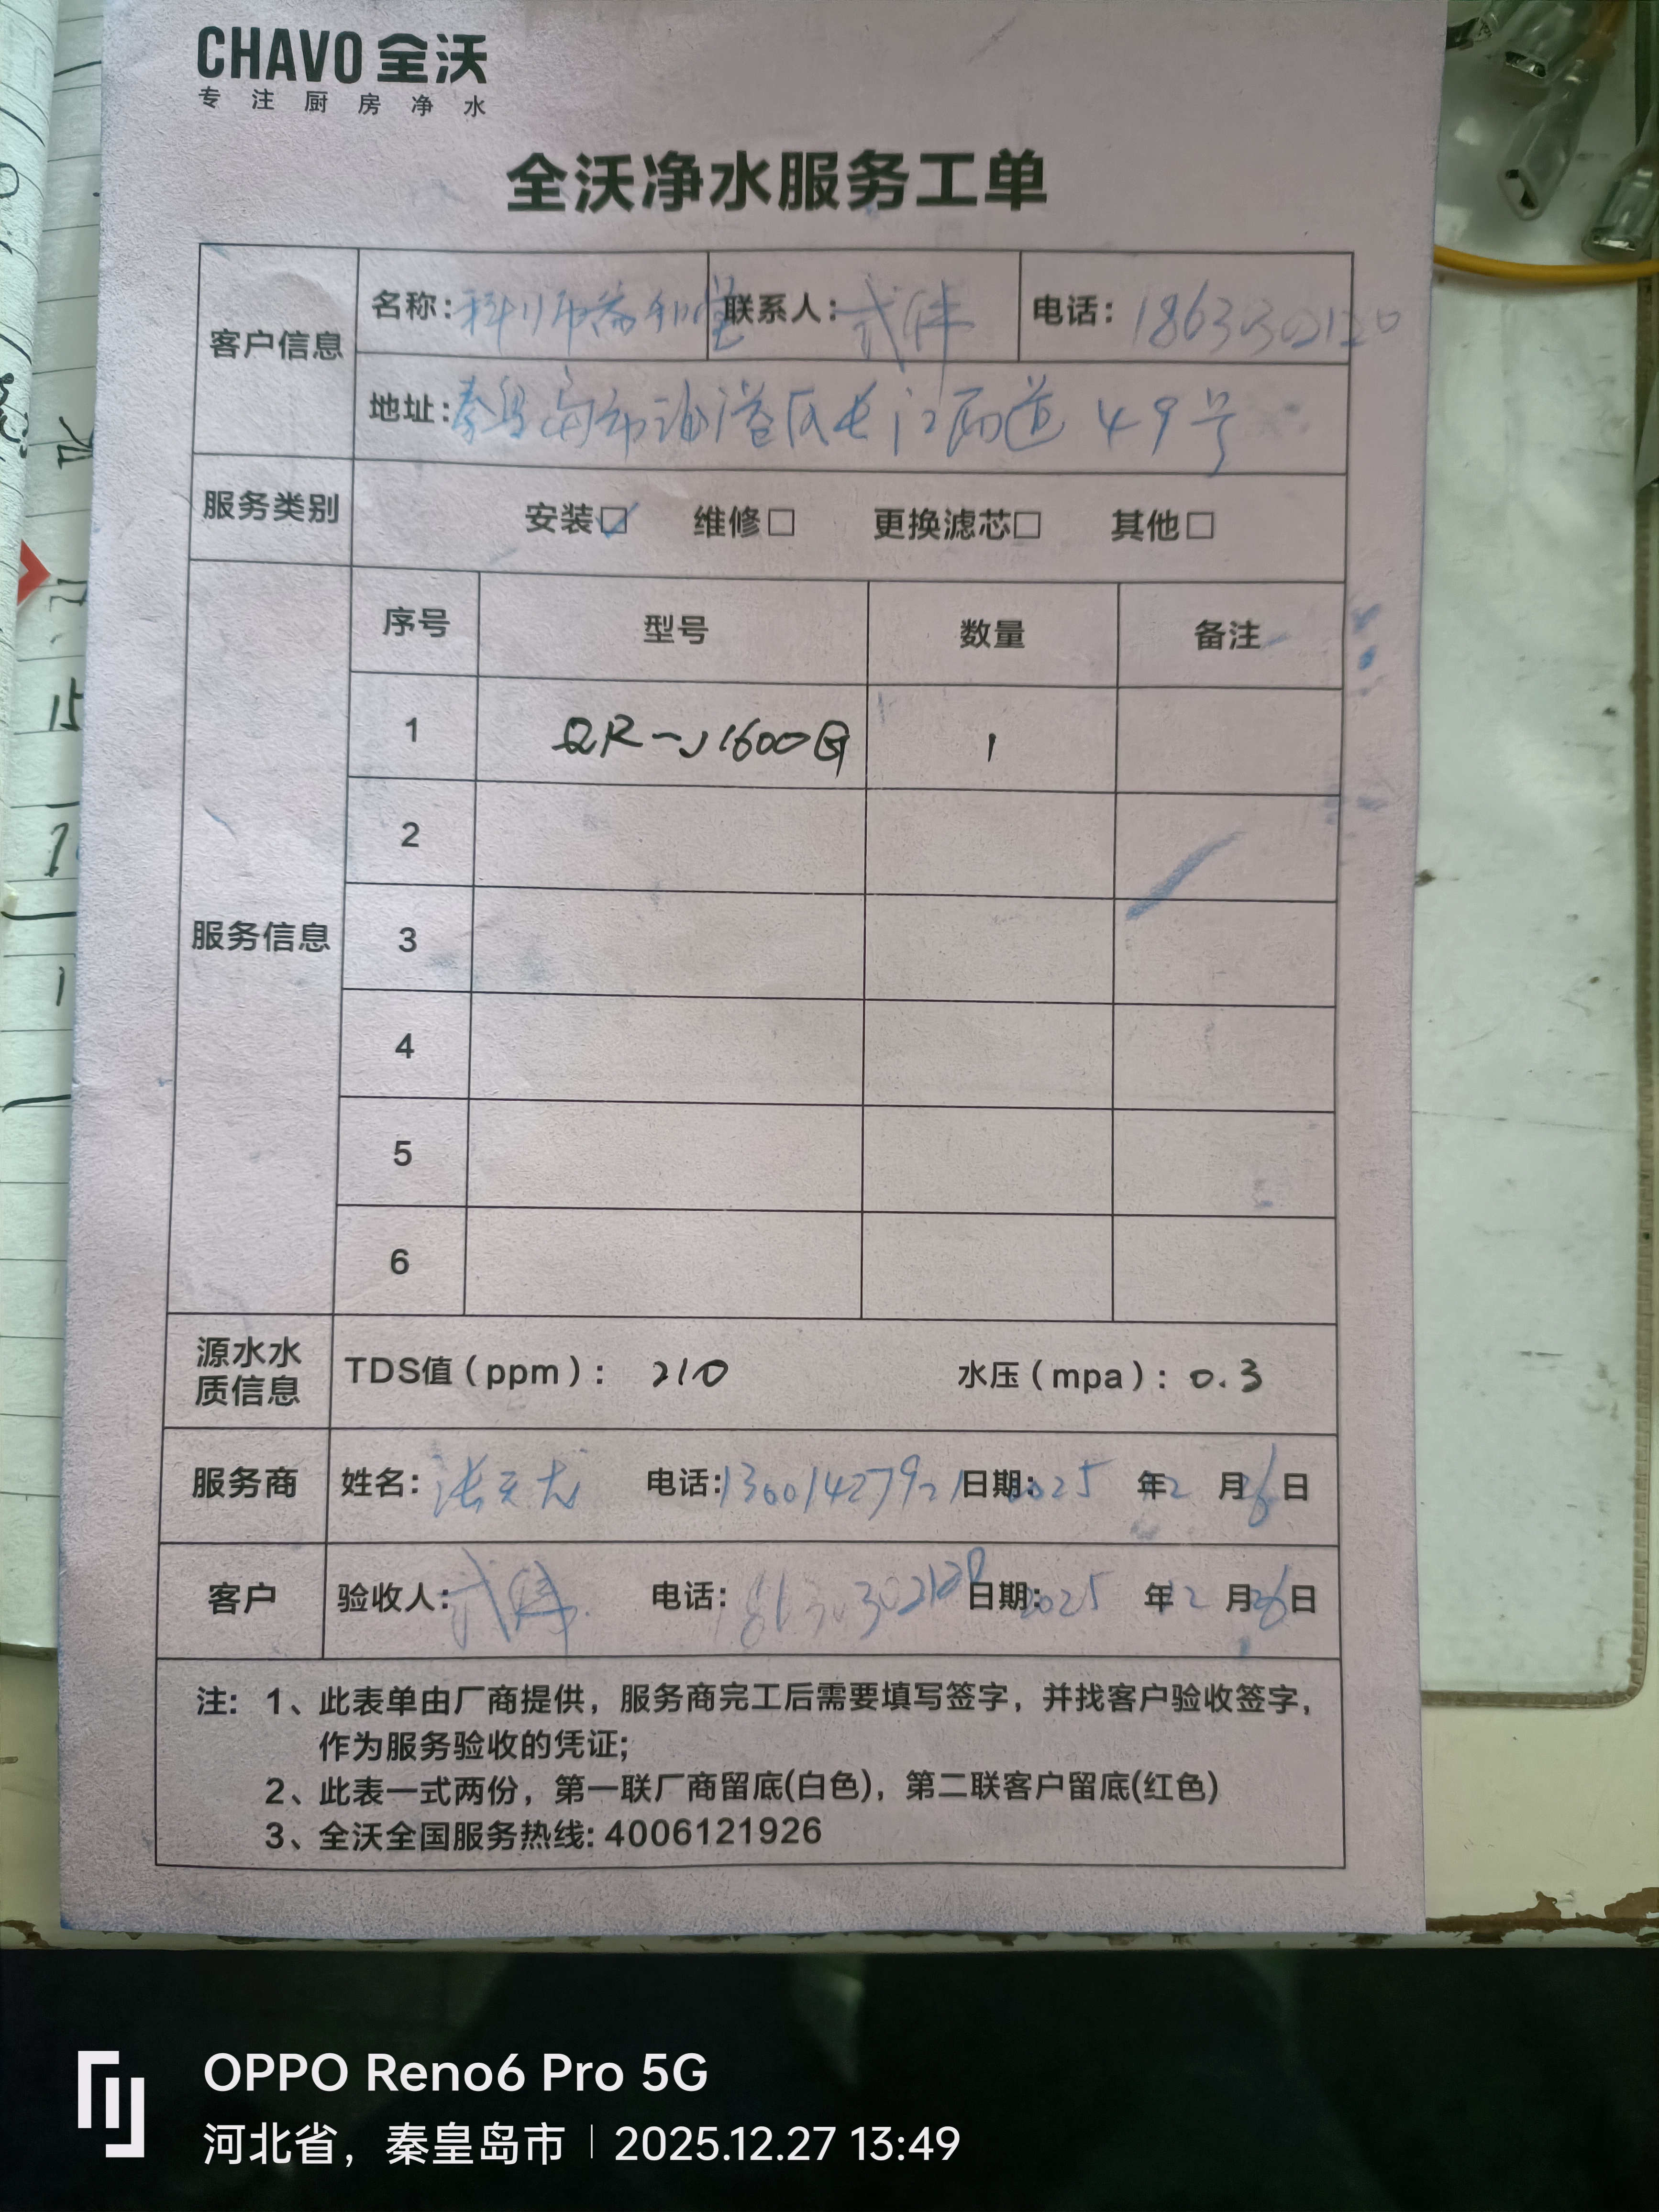 CHAVO 全沃
专注厨房净水
全沃净水服务工单
客户信息
名称：科师益和堂 联系人： 电话：18633302120
地址：秦皇岛市海港区长江西道49号
服务类别 安装☑ 维修□ 更换滤芯□ 其他□
服务信息
序号 型号 数量 备注
1 QR-J1600G 1
2
3
4
5
6
源水水质信息 TDS值（ppm）：210 水压（mpa）：0.3
服务商 姓名：张 电话：13001427921 日期：2025年12月26日
客户 验收人： 电话：18633302120 日期：2025年12月26日
注：1、此表单由厂商提供，服务商完工后需要填写签字，并找客户验收签字，
作为服务验收的凭证；
2、此表一式两份，第一联厂商留底(白色)，第二联客户留底(红色)
3、全沃全国服务热线：4006121926
15
OPPO Reno6 Pro 5G
河北省，秦皇岛市 | 2025.12.27 13:49